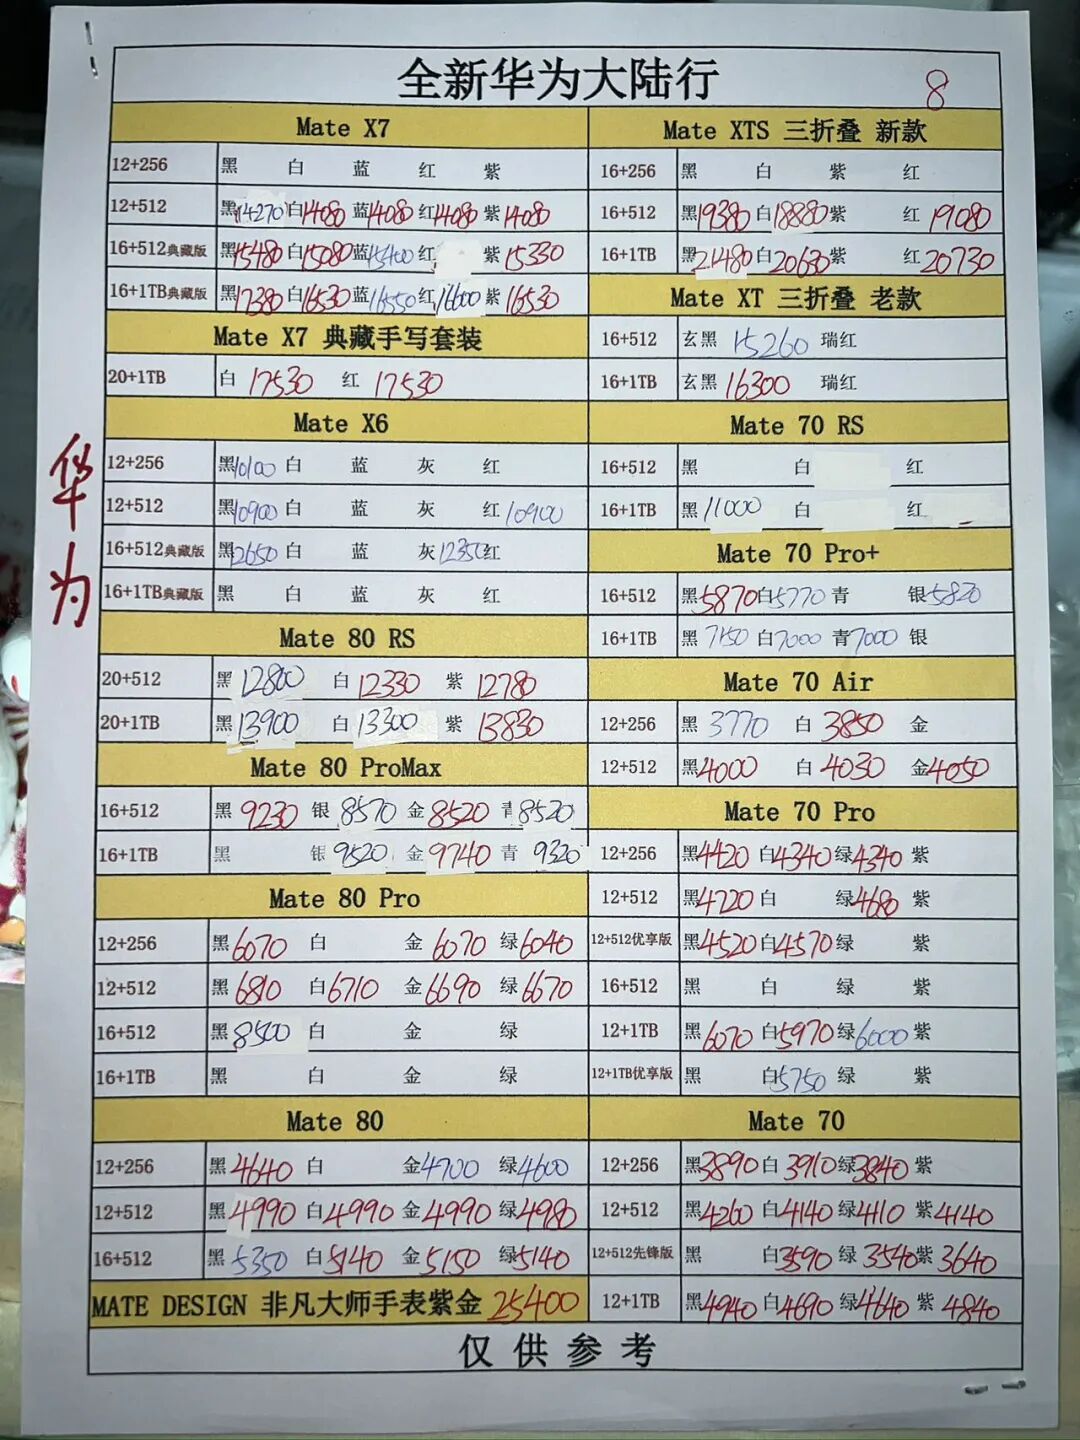 全新华为大陆行
8
华为
Mate X7
12+256 黑 白 蓝 红 紫
12+512 黑14270 白14080 蓝14080 红14080 紫14080
16+512典藏版 黑15480 白15080 蓝15400 红 紫15330
16+1TB典藏版 黑17380 白16530 蓝16550 红16600 紫16530
Mate X7 典藏手写套装
20+1TB 白 17530 红 17530
Mate X6
12+256 黑10100 白 蓝 灰 红
12+512 黑10900 白 蓝 灰 红10900
16+512典藏版 黑12650 白 蓝 灰12350 红
16+1TB典藏版 黑 白 蓝 灰 红
Mate 80 RS
20+512 黑 12800 白 12330 紫 12780
20+1TB 黑 13900 白 13300 紫 13830
Mate 80 ProMax
16+512 黑 9230 银 8570 金 8520 青 8520
16+1TB 黑 银 9520 金 9740 青 9320
Mate 80 Pro
12+256 黑 6070 白 金 6070 绿 6040
12+512 黑 6810 白 6710 金 6690 绿 6670
16+512 黑 8500 白 金 绿
16+1TB 黑 白 金 绿
Mate 80
12+256 黑 4640 白 金4700 绿4600
12+512 黑 4990 白4990 金 4990 绿4980
16+512 黑 5350 白5140 金 5150 绿5140
MATE DESIGN 非凡大师手表紫金 25400
Mate XTS 三折叠 新款
16+256 黑 白 紫 红
16+512 黑19380 白18880 紫 红 19080
16+1TB 黑21480 白20630 紫 红20730
Mate XT 三折叠 老款
16+512 玄黑 15260 瑞红
16+1TB 玄黑 16300 瑞红
Mate 70 RS
16+512 黑 白 红
16+1TB 黑 11000 白 红
Mate 70 Pro+
16+512 黑5870 白5770 青 银5820
16+1TB 黑 7150 白7000 青7000 银
Mate 70 Air
12+256 黑 3770 白 3850 金
12+512 黑4000 白 4030 金4050
Mate 70 Pro
12+256 黑4420 白4340 绿4340 紫
12+512 黑4720 白 绿4680 紫
12+512优享版 黑4520 白4570 绿 紫
16+512 黑 白 绿 紫
12+1TB 黑6070 白5970 绿6000 紫
12+1TB优享版 黑 白5750 绿 紫
Mate 70
12+256 黑3890 白 3910 绿3840 紫
12+512 黑4260 白4140 绿4110 紫4140
12+512先锋版 黑 白3590 绿 3540 紫 3640
12+1TB 黑4940 白4690 绿4640 紫 4840
仅供参考